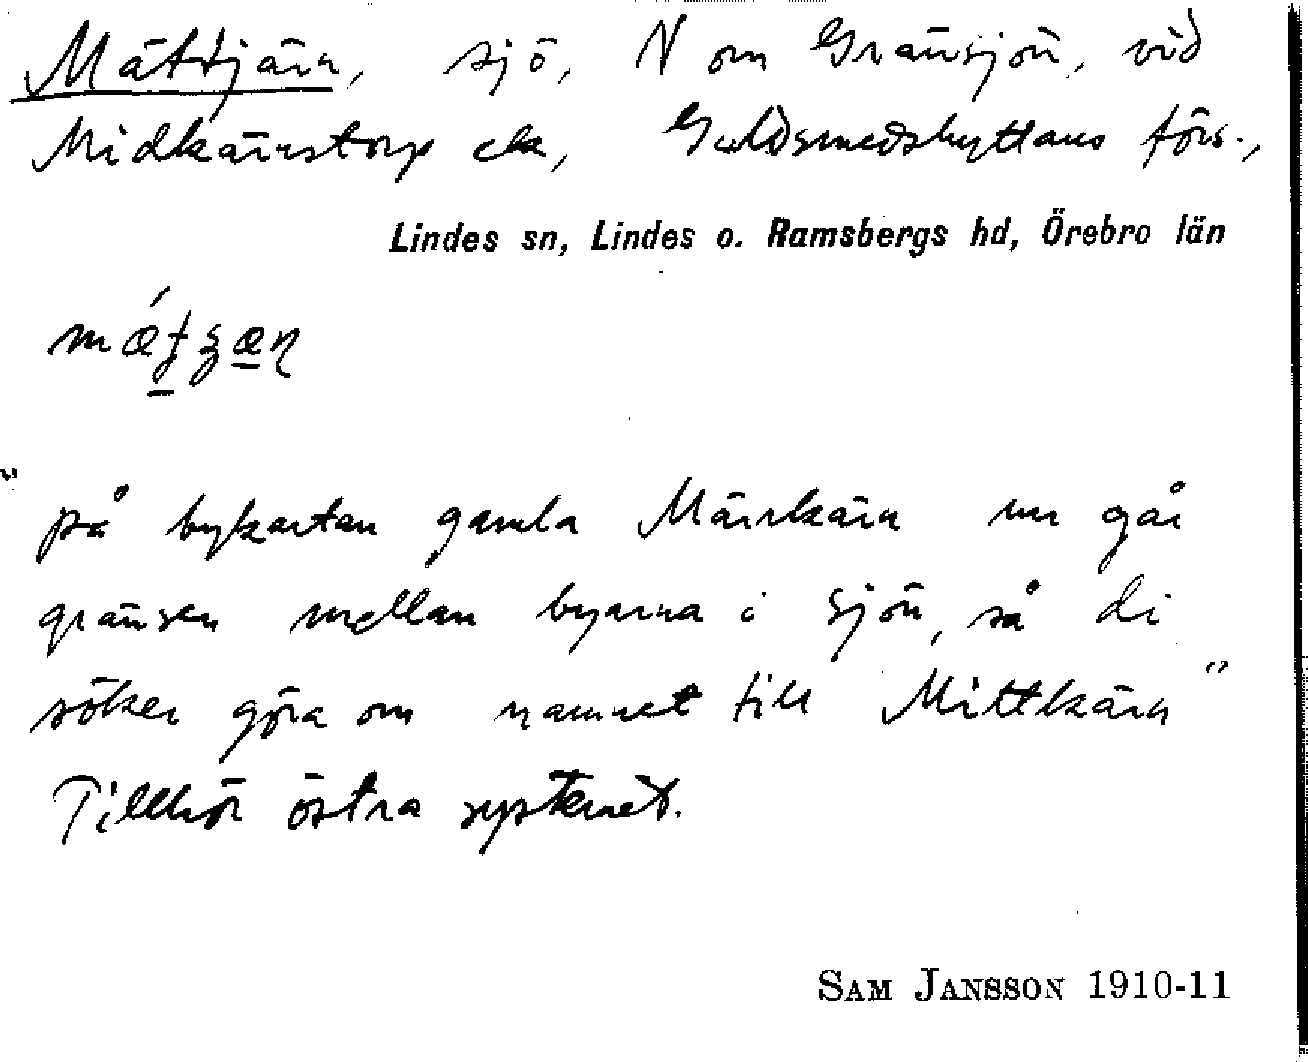 Mättjärn, sjö, N om Gränsjön, vid
Midkärnstorp etc, Guldsmedshyttans förs.,
Lindes sn, Lindes o. Ramsbergs hd, Örebro län
"på bykartan gamla Märrkärn nu går
gränsen mellan byarna i sjön, så di
söker göra om namnet till Mittkärn"
Tillhör östra systemet.
SAM JANSSON 1910-11